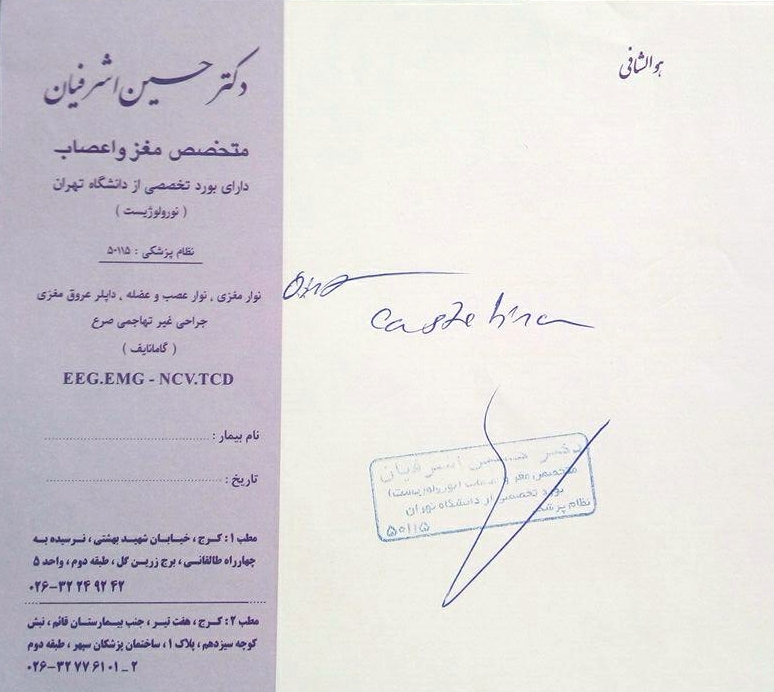 هوالشافی
دکتر حسین اشرفیان
متخصص مغز و اعصاب
دارای بورد تخصصی از دانشگاه تهران
( نورولوژیست )
نظام پزشکی : ۵۰۱۱۵
نوار مغزی ، نوار عصب و عضله ، داپلر عروق مغزی
جراحی غیر تهاجمی صرع
( گامانایف )
EEG.EMG - NCV.TCD
نام بیمار :
تاریخ :
مطب ۱ : کرج ، خیابان شهید بهشتی ، نرسیده به
چهارراه طالقانی ، برج زرین گل ، طبقه دوم ، واحد ۵
۰۲۶-۳۲ ۲۴ ۹۲ ۴۲
مطب ۲ : کرج ، هفت تیر ، جنب بیمارستان قائم ، نبش
کوچه سیزدهم ، پلاک ۱ ، ساختمان پزشکان سپهر ، طبقه دوم
۰۲۶-۳۲ ۷۷ ۶۱ ۰۱ _ ۲
دکتر حسین اشرفیان
متخصص مغز و اعصاب (نورولوژیست)
بورد تخصصی از دانشگاه تهران
نظام پزشکی
۵۰۱۱۵